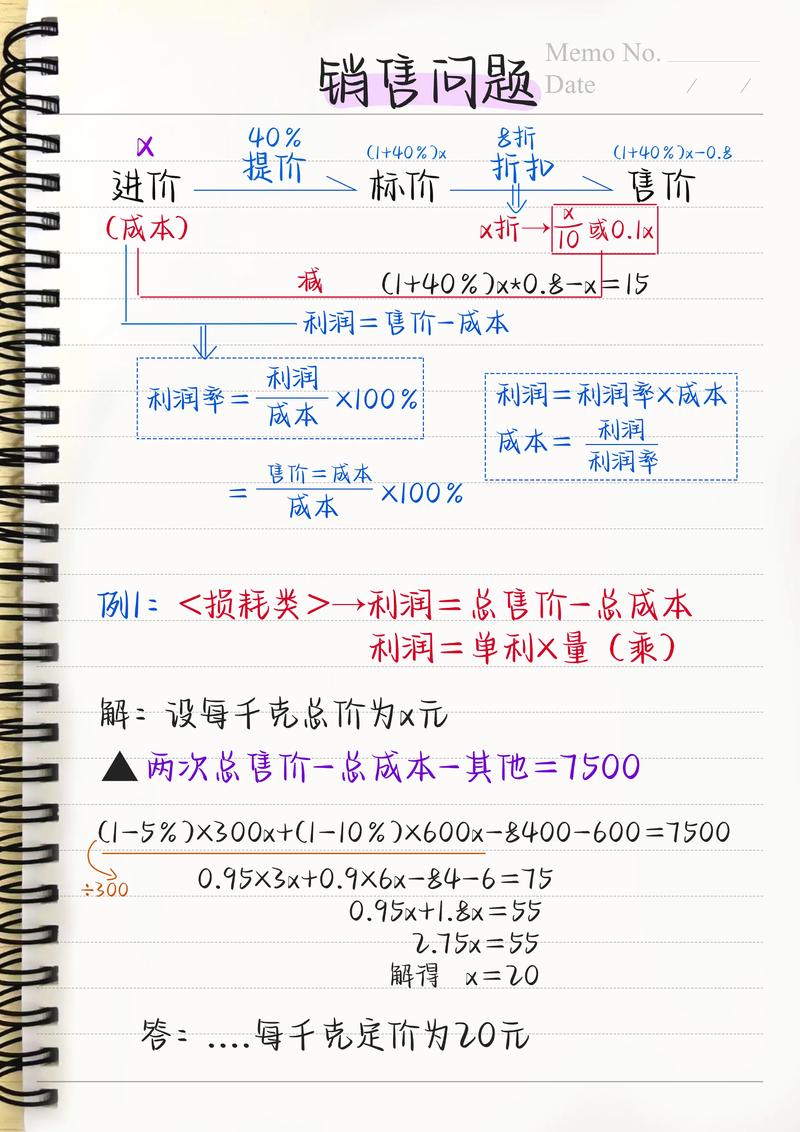 销售问题
Memo No.
Date / /
x 40% (1+40%)x 8折 (1+40%)x-0.8
提价 折扣
进价 标价 售价
(成本) x折→x/10或0.1x
减 (1+40%)x*0.8-x=15
利润=售价-成本
利润率=利润/成本×100%
利润=利润率×成本
成本=利润/利润率
=售价=成本/成本×100%
例1: <损耗类>→利润=总售价-总成本
利润=单利×量(乘)
解: 设每千克总价为x元
▲两次总售价-总成本-其他=7500
(1-5%)×300x+(1-10%)×600x-8400-600=7500
÷300
0.95×3x+0.9×6x-84-6=75
0.95x+1.8x=55
2.75x=55
解得 x=20
答: ....每千克定价为20元